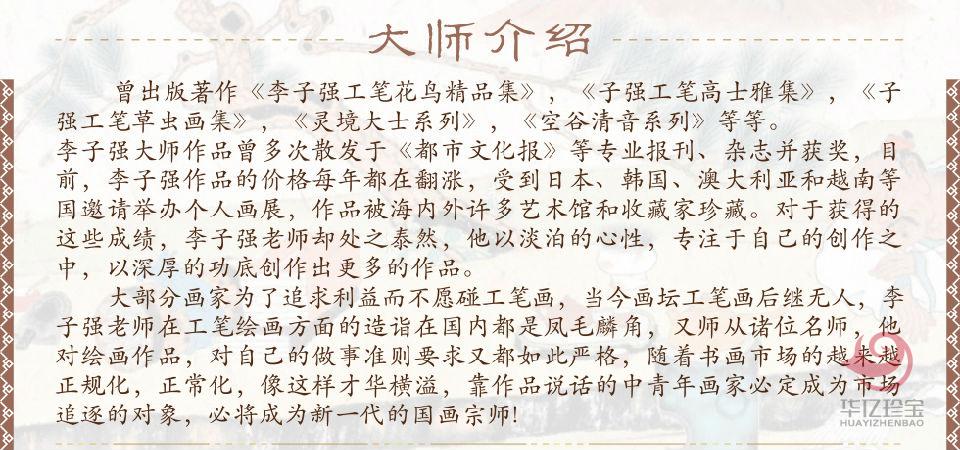 大师介绍
曾出版著作《李子强工笔花鸟精品集》，《子强工笔高士雅集》，《子
强工笔草虫画集》，《灵境大士系列》，《空谷清音系列》等等。
李子强大师作品曾多次散发于《都市文化报》等专业报刊、杂志并获奖，目
前，李子强作品的价格每年都在翻涨，受到日本、韩国、澳大利亚和越南等
国邀请举办个人画展，作品被海内外许多艺术馆和收藏家珍藏。对于获得的
这些成绩，李子强老师却处之泰然，他以淡泊的心性，专注于自己的创作之
中，以深厚的功底创作出更多的作品。
大部分画家为了追求利益而不愿碰工笔画，当今画坛工笔画后继无人，李
子强老师在工笔绘画方面的造诣在国内都是凤毛麟角，又师从诸位名师，他
对绘画作品，对自己的做事准则要求又都如此严格，随着书画市场的越来越
正规化，正常化，像这样才华横溢，靠作品说话的中青年画家必定成为市场
追逐的对象，必将成为新一代的国画宗师!
华亿珍宝
HUAYIZHENBAO